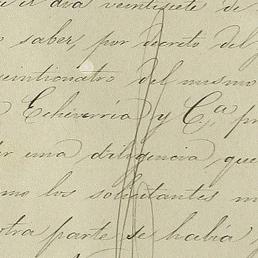 el día veintisiete de
saber, por decreto del
veinticuatro del mismo
Echeverría y C.a, pr
una diligencia, que
mo los solicitantes m
otra parte se había,